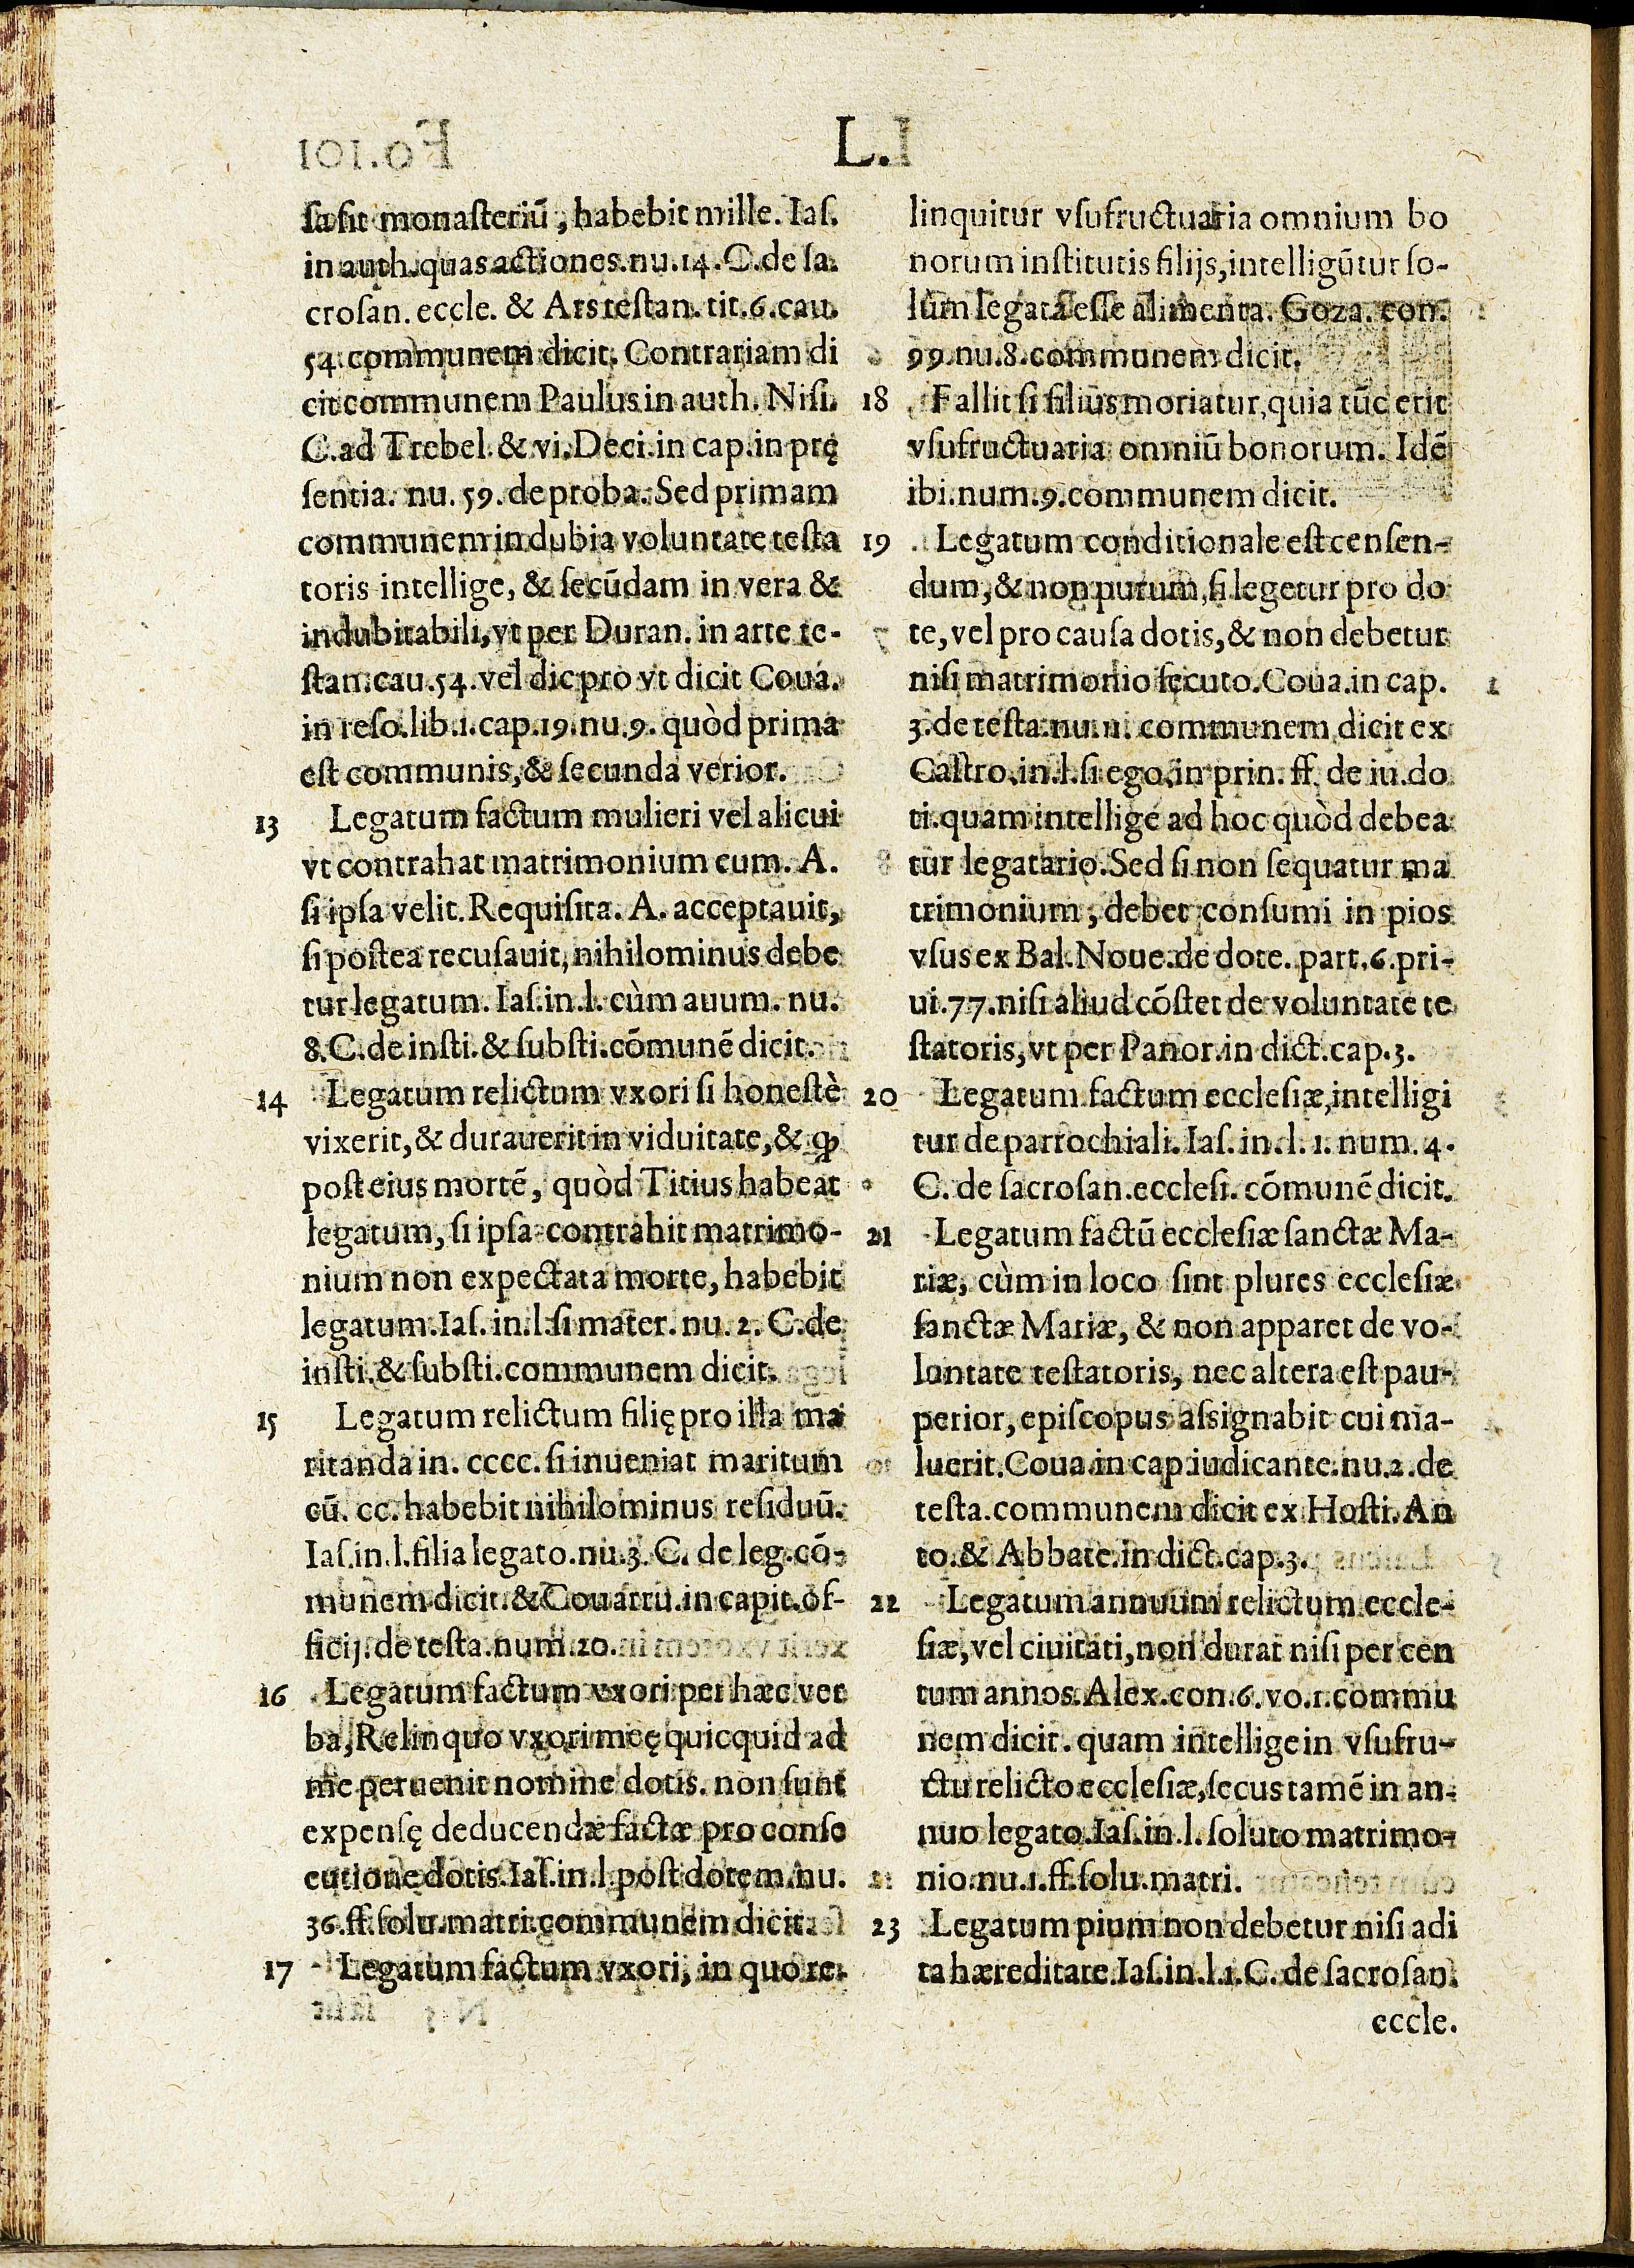 L.
sa sit monasteriũ, habebit mille. Ias.
in auth. quas actiones. nu. 14. C. de sa.
crosan. eccle. & Ars testan. tit. 6. cau.
54. communem dicit. Contrariam di
cit communem Paulus in auth. Nisi.
C. ad Trebel. & vi. Deci. in cap. in prę
sentia. nu. 59. de proba. Sed primam
communem in dubia voluntate testa
toris intellige, & secũdam in vera &
indubitabili, vt per Duran. in arte te-
stan. cau. 54. vel dic pro vt dicit Coua.
in reso. lib. 1. cap. 19. nu. 9. quòd prima
est communis, & secunda verior.
13 Legatum factum mulieri vel alicui
vt contrahat matrimonium cum. A.
si ipsa velit. Requisita. A. acceptauit,
si postea recusauit, nihilominus debe
tur legatum. Ias. in. l. cùm auum. nu.
8. C. de insti. & substi. cõmunẽ dicit.
14 Legatum relictum vxori si honestè
vixerit, & durauerit in viduitate, & ꝙ
post eius mortẽ, quòd Titius habeat
legatum, si ipsa contrahit matrimo-
nium non expectata morte, habebit
legatum. Ias. in. l. si mater. nu. 2. C. de
insti. & substi. communem dicit.
15 Legatum relictum filię pro illa ma
ritanda in. cccc. si inueniat maritum
cũ. cc. habebit nihilominus residuũ.
Ias. in. l. filia legato. nu. 3. C. de leg. cõ-
munem dicit. & Couarru. in capit. of-
ficij. de testa. num. 20.
16 Legatum factum vxori per hæc ver
ba, Relinquo vxori meę quicquid ad
me peruenit nomine dotis. non sunt
expensę deducendæ factæ pro conse
cutione dotis. Ias. in. l. post dotem. nu.
36. ff. solu. matri. communem dicit.
17 Legatum factum vxori, in quo re-
linquitur vsufructuaria omnium bo
norum institutis filijs, intelligũtur so-
lùm legata esse alimenta. Goza. con.
99. nu. 8. communem dicit.
18 Fallit si filius moriatur, quia tũc erit
vsufructuaria omniũ bonorum. Idẽ
ibi. num. 9. communem dicit.
19 Legatum conditionale est censen-
dum, & non purum, si legetur pro do
te, vel pro causa dotis, & non debetur
nisi matrimonio secuto. Coua. in cap.
3. de testa. nu. 11. communem dicit ex
Castro. in. l. si ego. in prin. ff. de iu. do
ti. quam intellige ad hoc quòd debea
tur legatario. Sed si non sequatur ma
trimonium, debet consumi in pios
vsus ex Bal. Noue. de dote. part. 6. pri-
ui. 77. nisi aliud cõstet de voluntate te
statoris, vt per Panor. in dict. cap. 3.
20 Legatum factum ecclesiæ, intelligi
tur de parrochiali. Ias. in. l. 1. num. 4.
C. de sacrosan. ecclesi. cõmunẽ dicit.
21 Legatum factũ ecclesiæ sanctæ Ma-
riæ, cùm in loco sint plures ecclesiæ
sanctæ Mariæ, & non apparet de vo-
luntate testatoris, nec altera est pau-
perior, episcopus assignabit cui ma-
luerit. Coua. in cap. iudicante. nu. 2. de
testa. communem dicit ex Hosti. An
to. & Abbate. in dict. cap. 3.
22 Legatum annuum relictum eccle-
siæ, vel ciuitati, non durat nisi per cen
tum annos. Alex. con. 6. vo. 1. commu
nem dicit. quam intellige in vsufru-
ctu relicto ecclesiæ, secus tamẽ in an-
nuo legato. Ias. in. l. soluto matrimo-
nio. nu. 1. ff. solu. matri.
23 Legatum pium non debetur nisi adi
ta hæreditate. Ias. in. l. 1. C. de sacrosan.
eccle.